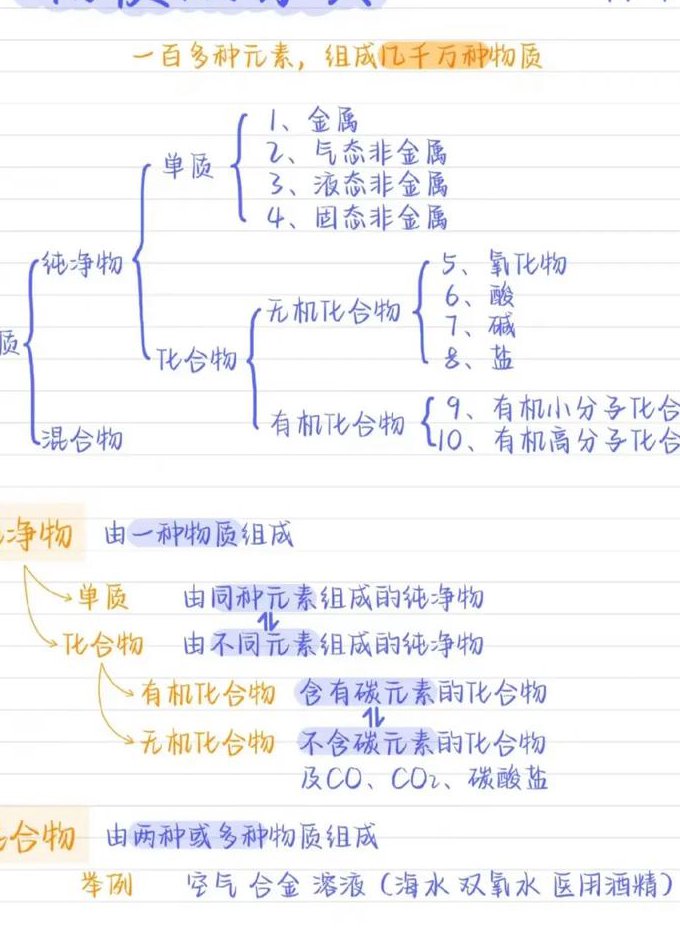 一百多种元素，组成几千万种物质
1、金属
2、气态非金属
单质
3、液态非金属
4、固态非金属
纯净物
5、氧化物
6、酸
无机化合物
7、碱
8、盐
质
化合物
9、有机小分子化合
有机化合物
10、有机高分子化合
混合物
净物 由一种物质组成
单质 由同种元素组成的纯净物
化合物 由不同元素组成的纯净物
有机化合物 含有碳元素的化合物
无机化合物 不含碳元素的化合物
及CO、CO₂、碳酸盐
合物 由两种或多种物质组成
举例 空气 合金 溶液（海水 双氧水 医用酒精）